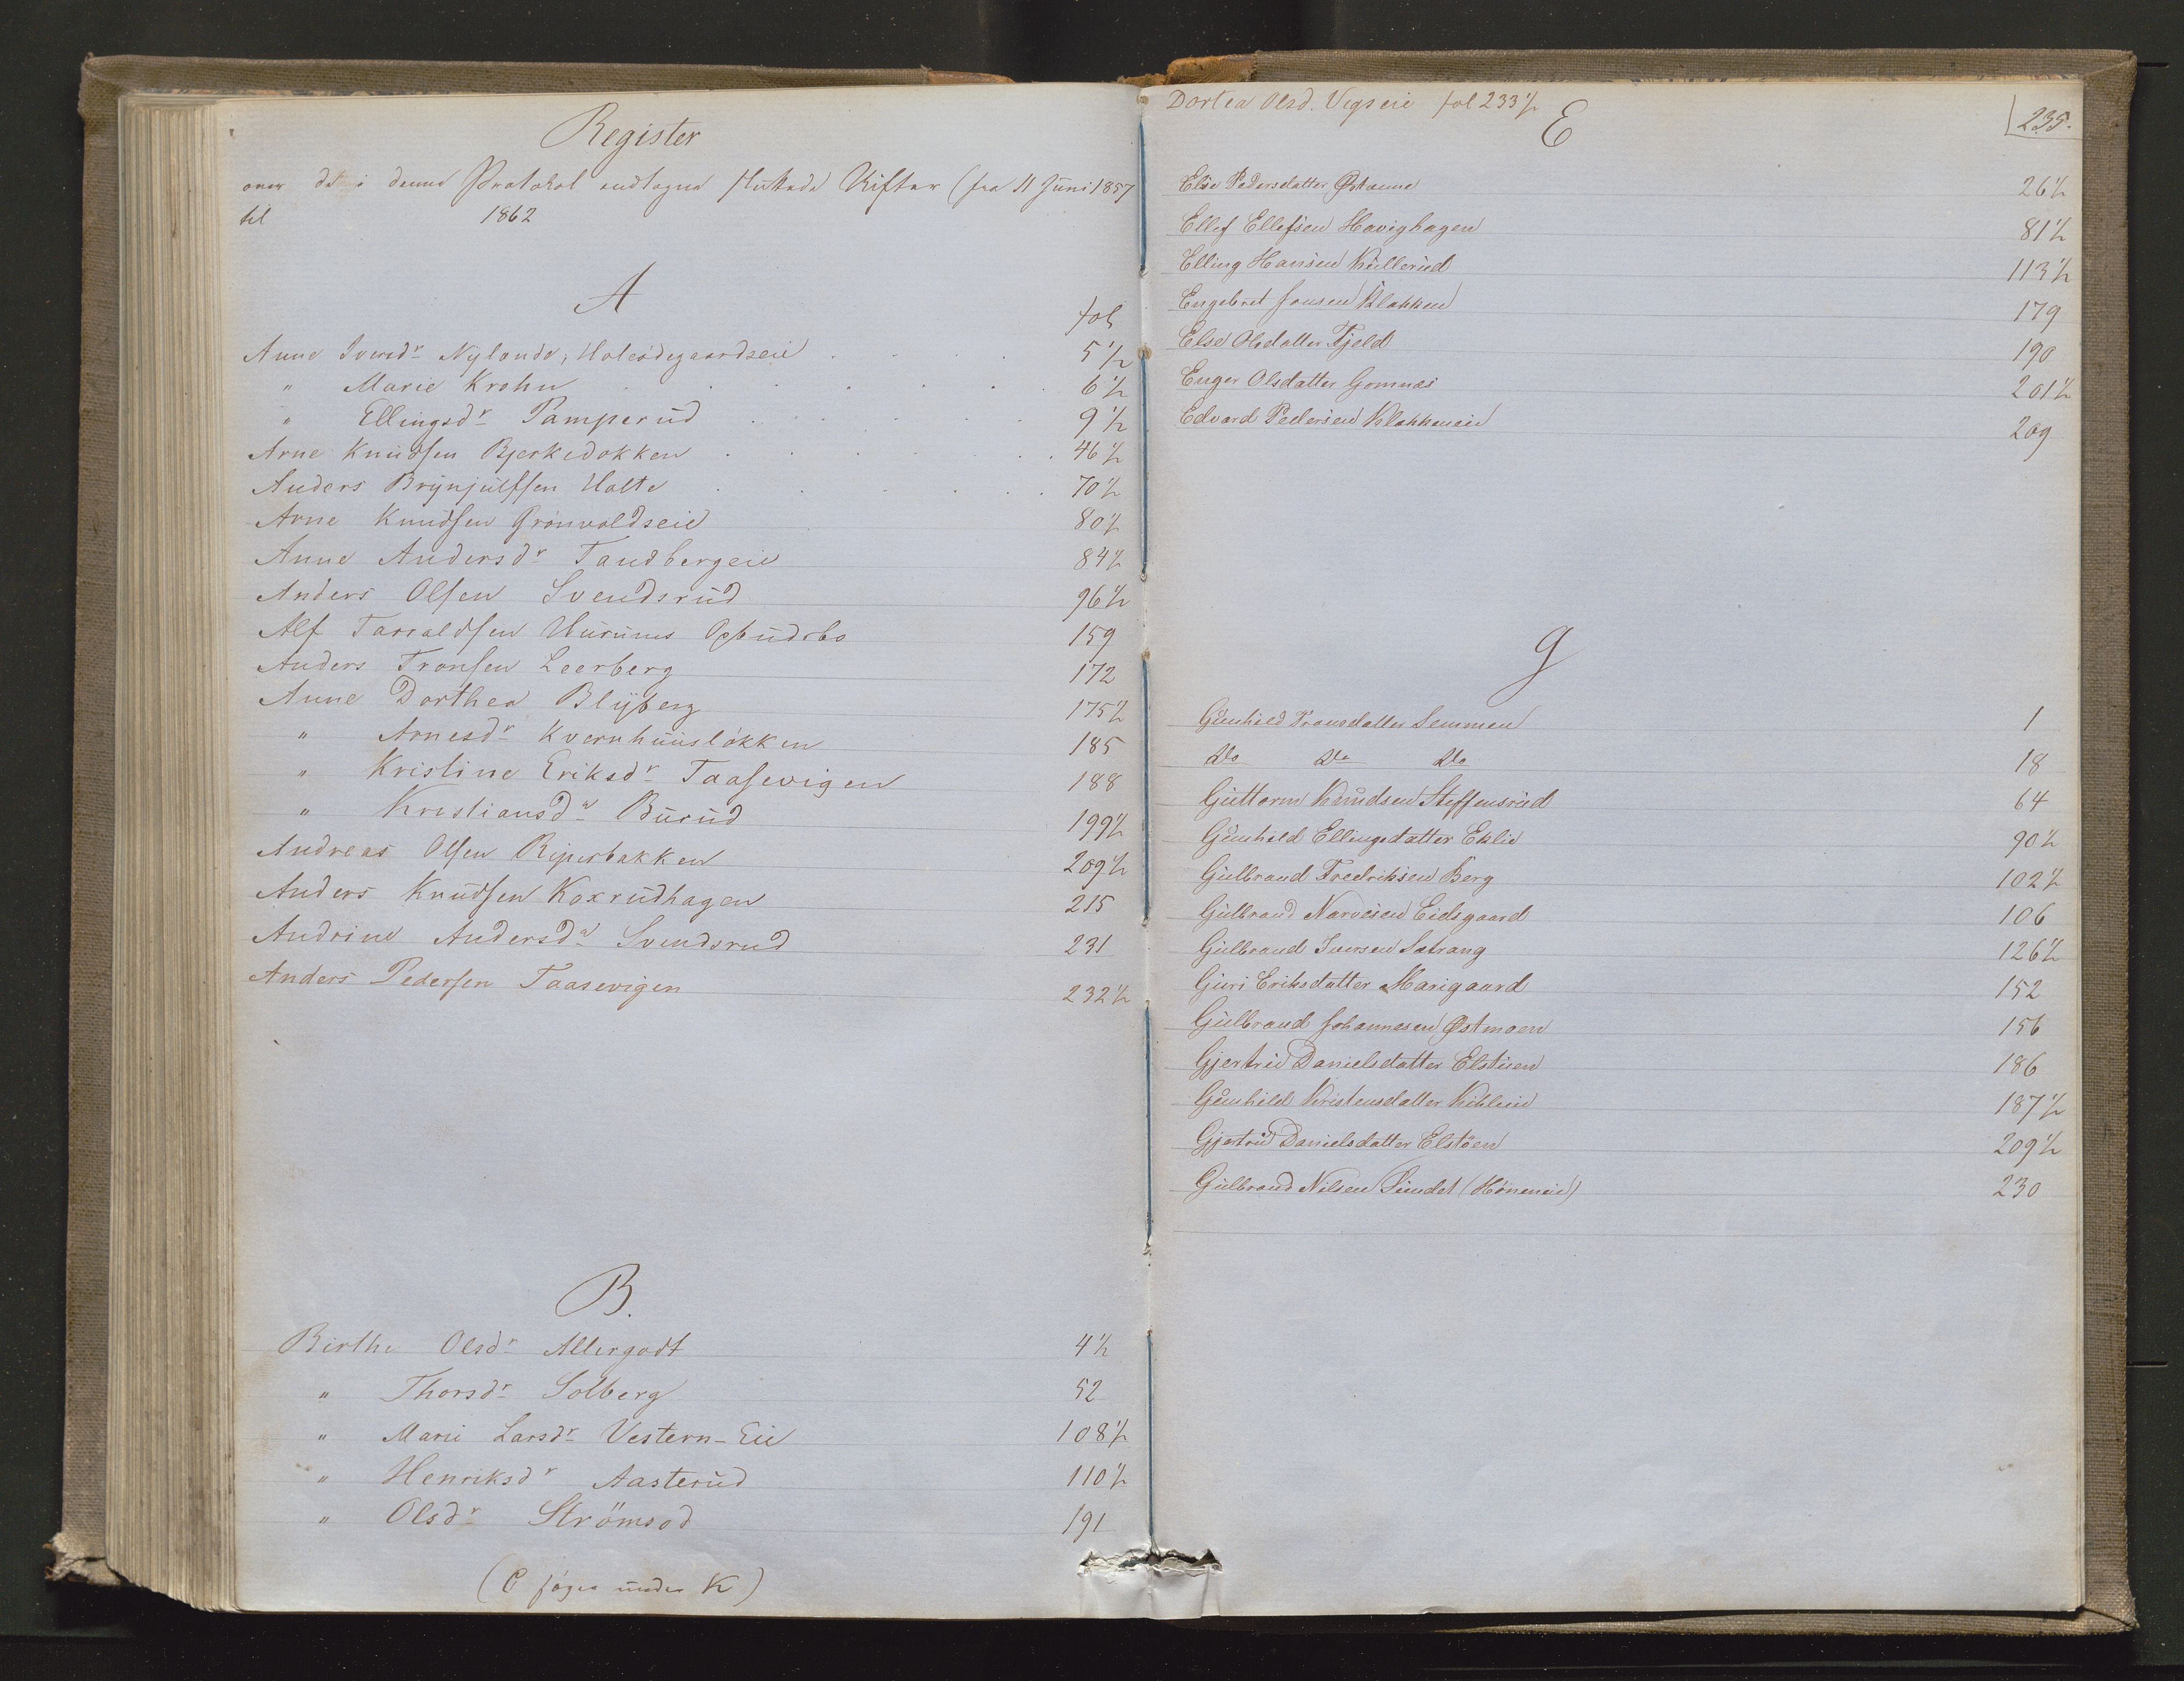 Register
over de i denne Protokol indtagne sluttede Skifter (fra 11 Juni 1857
til 1862
A
fol
Anne Iversdr Nylende, Holeødegaardseie 5 1/2
" Marie Krohn 6 1/2
" Ellingsdr Pamperud 9 1/2
Arne Knudsen Bjerkedokken 46 1/2
Anders Brynjulfsen Holte 70 1/2
Arne Knudsen Grønvoldseie 80 1/2
Anne Andersdr Tandbergeie 84 1/2
Anders Olsen Svendsrud 96 1/2
Alf Taraldsen 159
Anders Tronsen Leerberg 172
Anne Dorthea Blyberg 175 1/2
" Arnesdr Kvernhuusløkken 185
" Kristine Eriksdr Taasevigen 188
" Kristiansdr Burud 199 1/2
Andreas Olsen Riperbakken 209 1/2
Anders Knudsen Koxrudhagen 215
Andrine Andersdr Svendsrud 231
Anders Pedersen Taasevigen 232 1/2
B.
Birthe Olsdr Allergodt 4 1/2
" Thorsdr Solberg 52
" Marie Larsdr Vestern-Eie 108 1/2
" Henriksdr Aasterud 110 1/2
" Olsdr Strömsod 191
(C søges under K)
Dortea Olsd. Vegseie fol 233 1/2
235.
E
Else Pedersdatter 26 1/2
Ellef Ellefsen Havighagen 81 1/2
Elling Hansen Kullerud 113 1/2
Engebret Jonsen Klokken 179
Else Olsdatter Fjeld 190
Enger Olsdatter Gomnæs 201 1/2
Edvard Pedersen Klokkeneie 209
G
Gunhild Tronsdatter Semmen 1
Do Do Do 18
Guttorm Knudsen Steffensrud 64
Gunhild Ellingsdatter Eklie 90 1/2
Gulbrand Fredriksen Berg 102 1/2
Gulbrand Narvesen Eidsgaard 106
Gulbrand Iversen Sætrang 126 1/2
Guri Eriksdatter Marigaard 152
Gulbrand Johannesen Østmoen 156
Gjertrud Danielsdatter Elstøen 186
Gunhild Kristensdatter 187 1/2
Gjertrud Danielsdatter Elstöen 209 1/2
Gulbrand Nilsen Sundet (Höneneie) 230